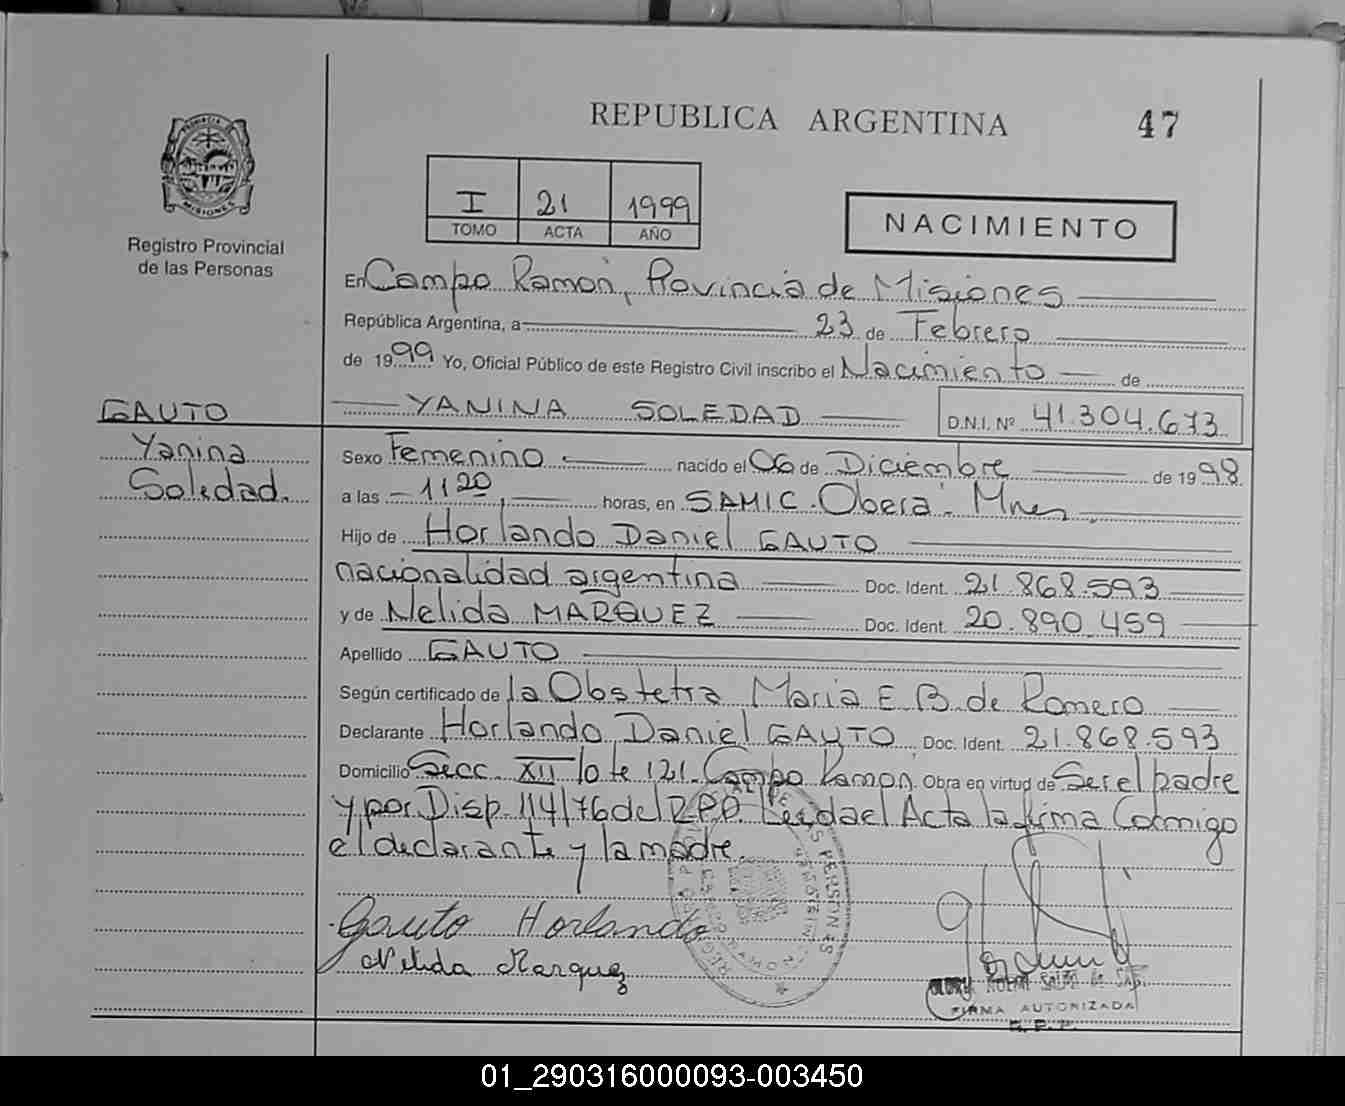 REPUBLICA ARGENTINA
47
PROVINCIA DE
MISIONES
Registro Provincial
de las Personas
I 21 1999
TOMO ACTA AÑO
NACIMIENTO
En Campo Ramón, Provincia de Misiones
República Argentina, a 23 de Febrero
de 1999 Yo, Oficial Público de este Registro Civil inscribo el Nacimiento de
GAUTO
Yanina
Soledad.
YANINA SOLEDAD D.N.I. Nº 41.304.673
Sexo Femenino nacido el 06 de Diciembre de 1998
a las 11 20 horas, en SAMIC. Oberá. Mnes
Hijo de Horlando Daniel GAUTO
nacionalidad argentina Doc. Ident. 21.868.593
y de Nelida MARQUEZ Doc. Ident. 20.890.459
Apellido GAUTO
Según certificado de la Obstetra Maria E. B. de Romero
Declarante Horlando Daniel GAUTO Doc. Ident. 21.868.593
Domicilio Secc. XII lote 121. Campo Ramón. Obra en virtud de Ser el padre
y por Disp. 114/76 del R.P.P. Leída el Acta la firma Conmigo
el declarante y la madre.
Gauto Horlando
Nelida Marquez
FIRMA AUTORIZADA
R. P. P.
01_290316000093-003450